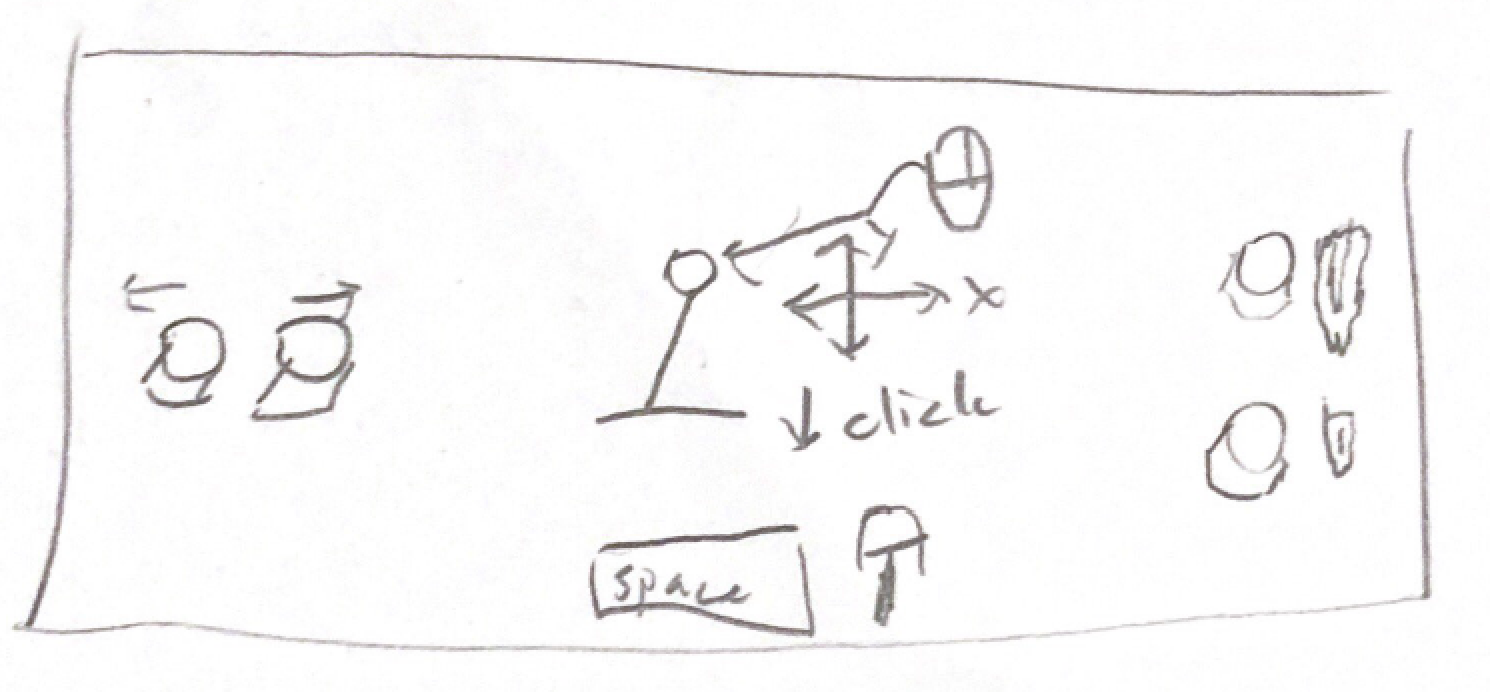 Y
X
↓ click
space